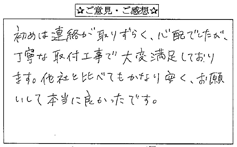 ☆ご意見・ご感想☆
初めは連絡が取りずらく、心配でしたが、
丁寧な取付工事で大変満足しており
ます。他社と比べてもかなり安く、お願
いして本当に良かったです。